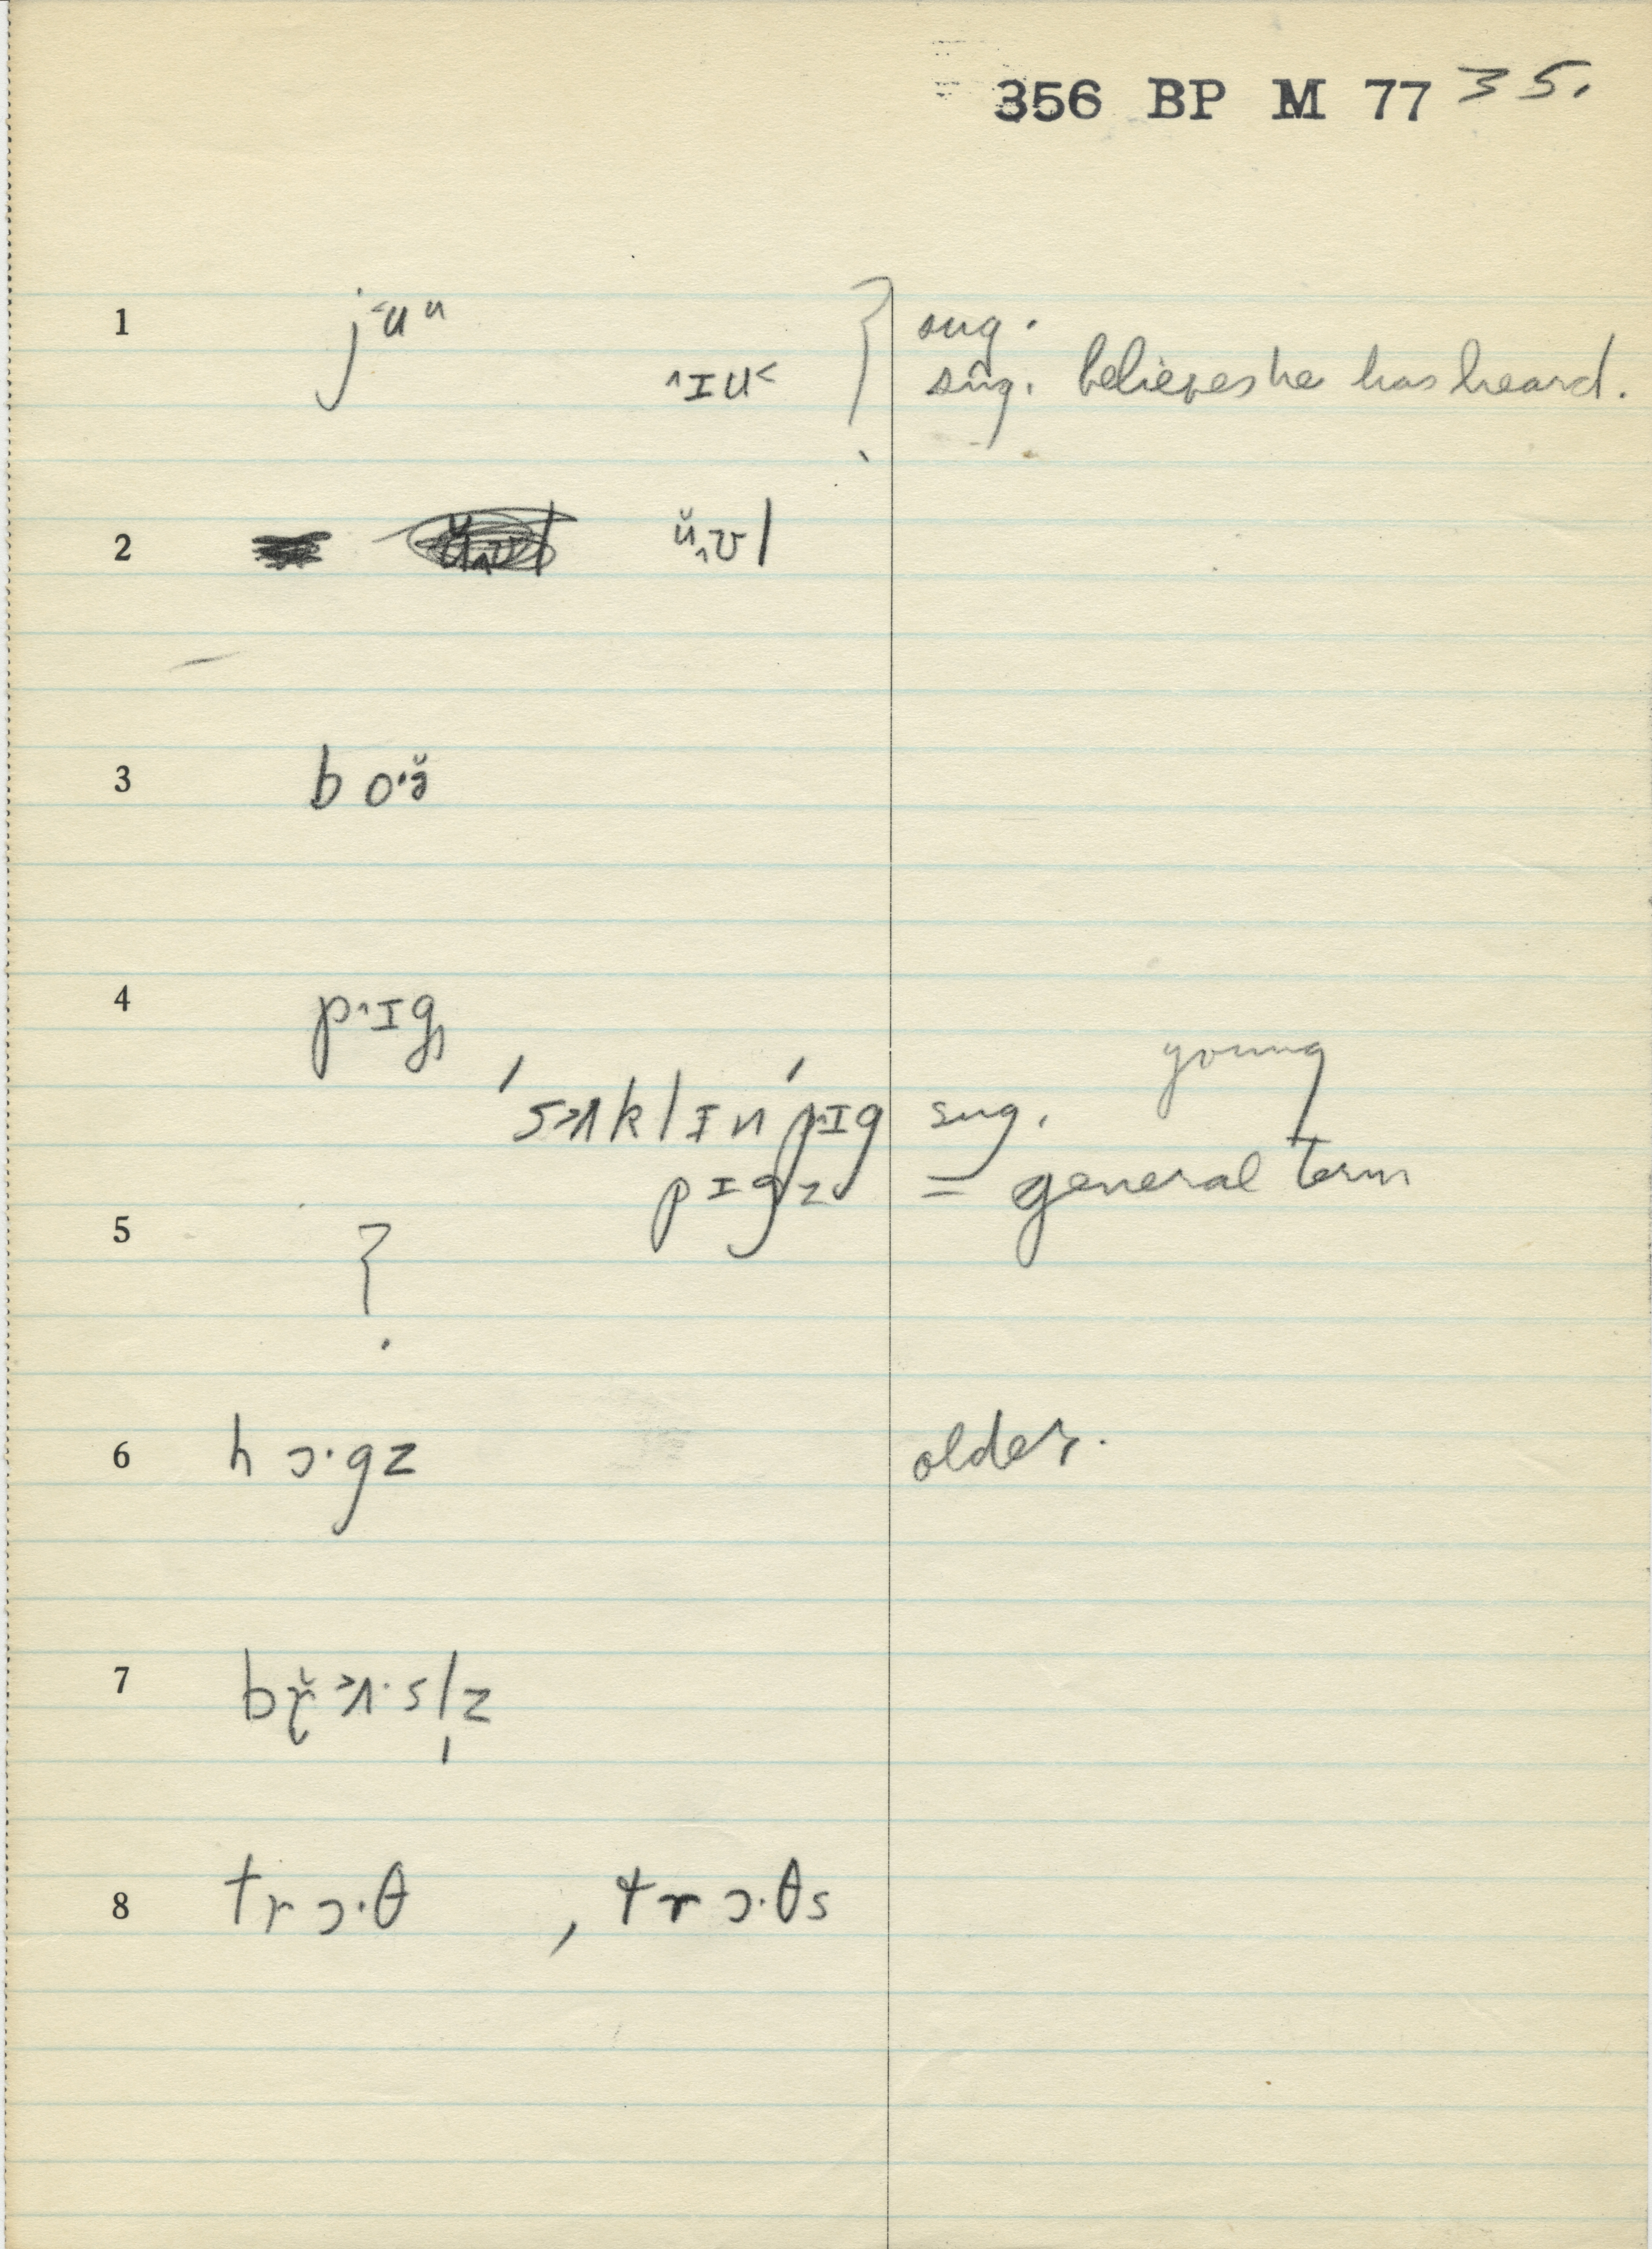 356 BP M 77 35.
1 j˂uᵘ } sug.
˄ɪu˂ sug. believes he has heard.
2 ŭ˄ʊl
3 bo·ə̆
4 p˄ɪg̥
ˈs˃ʌklɪnˈp˄ɪg sug. young
pɪgz = general term
5 ?
6 hɔ·gz older.
7 br̆˃ʌ·sl̩z
8 trɔ·θ , trɔ·θs